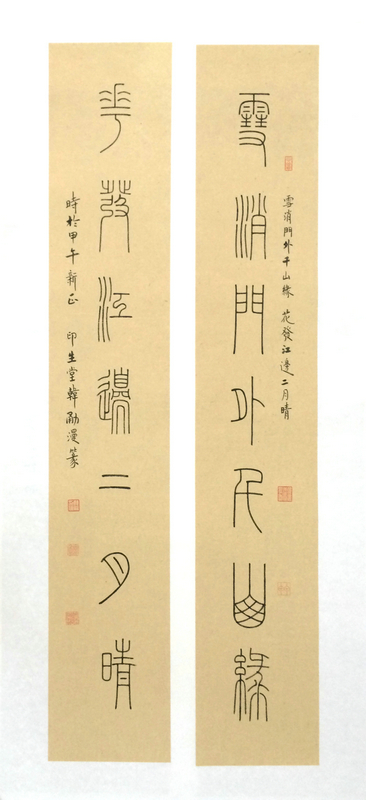 雪消門外千山綠 花發江邊二月晴
雪消門外千山綠
花發江邊二月晴
時於甲午新正 印生堂韓漫篆